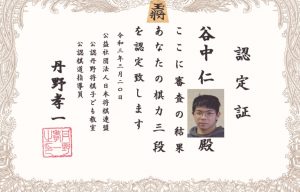 王将
認定証
谷中仁殿
ここに審査の結果
あなたの棋力三段
を認定致します
令和三年二月二〇日
公益社団法人日本将棋連盟
公認丹野将棋子ども教室
公認棋道指導員
丹野孝一